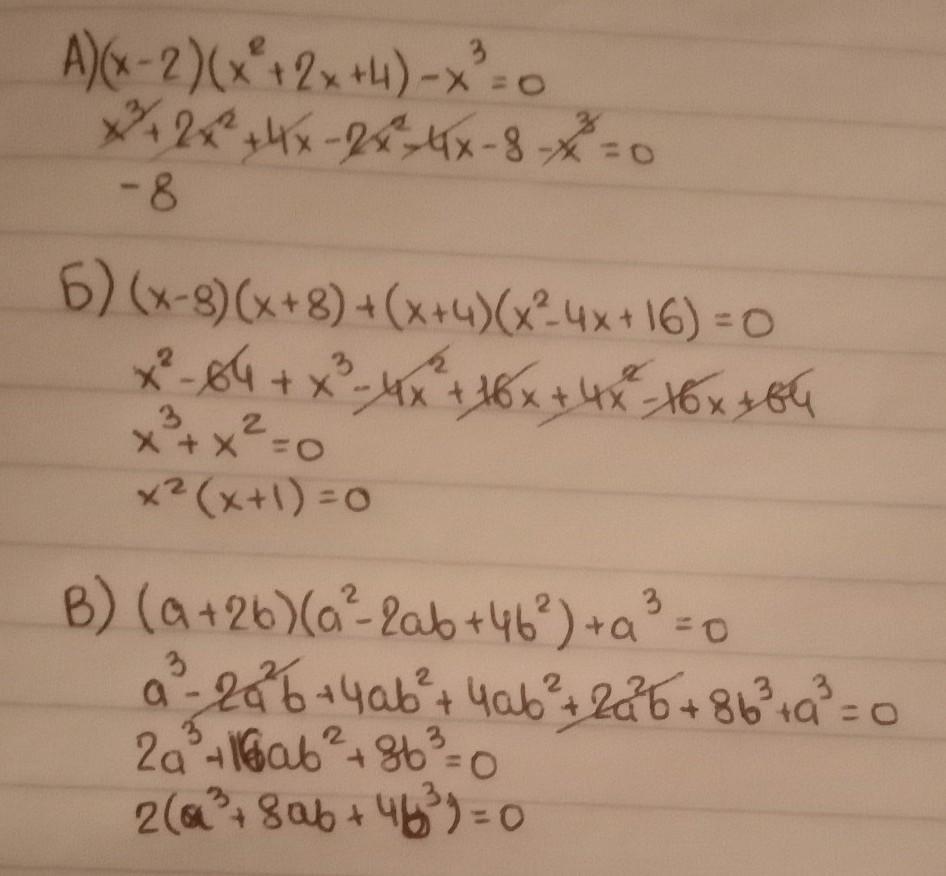 А)(x-2)(x²+2x+4)-x³=0
x³+2x²+4x-2x²-4x-8-x³=0
-8
Б) (x-8)(x+8)+(x+4)(x²-4x+16)=0
x²-64+x³-4x²+16x+4x²-16x+64
x³+x²=0
x²(x+1)=0
В) (a+2b)(a²-2ab+4b²)+a³=0
a³-2a²b+4ab²+4ab²+2a²b+8b³+a³=0
2a³+16ab²+8b³=0
2(a³+8ab+4b³)=0